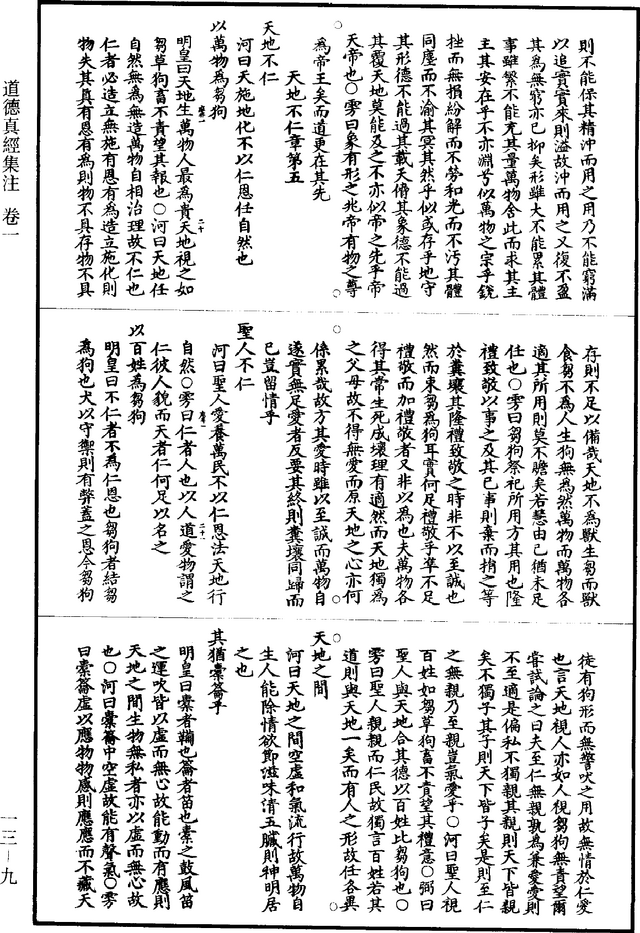 則不能保其精沖而用之用乃不能窮滿
以造實實來則溢故沖而用之又復不盈
其為無窮亦已抑矣形雖大不能累其體
事雖繁不能充其量萬物舍此而求其主
主其安在乎不亦淵兮似萬物之宗乎銳
挫而無損紛解而不勞和光而不污其體
同塵而不渝其冥其然乎似或存乎地守
其形德不能過其載天僃其象德不能過
其覆天地莫能及之不亦似帝之先乎帝
天帝也○雱曰象有形之兆帝有物之尊
為帝王矣而道更在其先
天地不仁章第五
天地不仁
河曰天施地化不以仁恩任自然也
以萬物為芻狗
明皇曰天地生萬物人最為貴天地視之如
芻草狗畜不責望其報也○河曰天地任
自然無為無造萬物自相治理故不仁也
仁者必造立無施有恩有為造立施化則
物失其真有恩有為則物不具存物不具
存則不足以備哉天地不為獸生芻而獸
食芻不為人生狗無為然萬物而萬物各
適其所用則莫不贍矣若慧由己猶未足
任也○雱曰芻狗祭祀所用方其用也隆
禮致敬以事之及其已事則棄而捎之等
於糞壤其隆禮致敬之時非不以至誠也
然而束芻為狗耳實何足禮敬乎準不足
禮敬而加禮敬者又非以為也夫萬物各
得其常生死成壞理有適然而天地獨為
之父母故不得無愛而原天地之心亦何
係累哉故方其愛時雖以至誠而萬物自
遂實無足愛者反要其終則糞壤同歸而
已豈留情乎
聖人不仁
河曰聖人愛養萬民不以仁恩法天地行
自然○雱曰仁者人也以人道愛物謂之
仁彼人貌而天者仁何足以名之
以百姓為芻狗
明皇曰不仁者不為仁恩也芻狗者結芻
為狗也犬以守禦則有弊蓋之恩今芻狗
徒有狗形而無警吠之用故無情於仁愛
也言天地視人亦如人視芻狗無責望爾
嘗試論之曰夫至仁無親孰為兼愛愛則
不至適是偏私不獨親其親則天下皆親
矣不獨子其子則天下皆子矣是則至仁
之無親乃至親豈氣愛乎○河曰聖人視
百姓如芻草狗畜不責望其禮意○弼曰
聖人與天地合其德以百姓比芻狗也○
雱曰聖人親親而仁民故獨言百姓若其
道則與天地一矣而有人之形故任各異
天地之間
河曰天地之間空虛和氣流行故萬物自
生人能除情欲節滋味清五臟則神明居
之也
其猶橐籥乎
明皇曰橐者鞴也籥者笛也橐之鼓風笛
之運吹皆以虛而無心故能動而有應則
天地之間生物無私者亦以虛而無心故
也○河曰橐籥中空虛故能有聲氣○雱
曰橐籥虛以應物物感則應應而不藏天
道德真經集注 卷一
一三－九